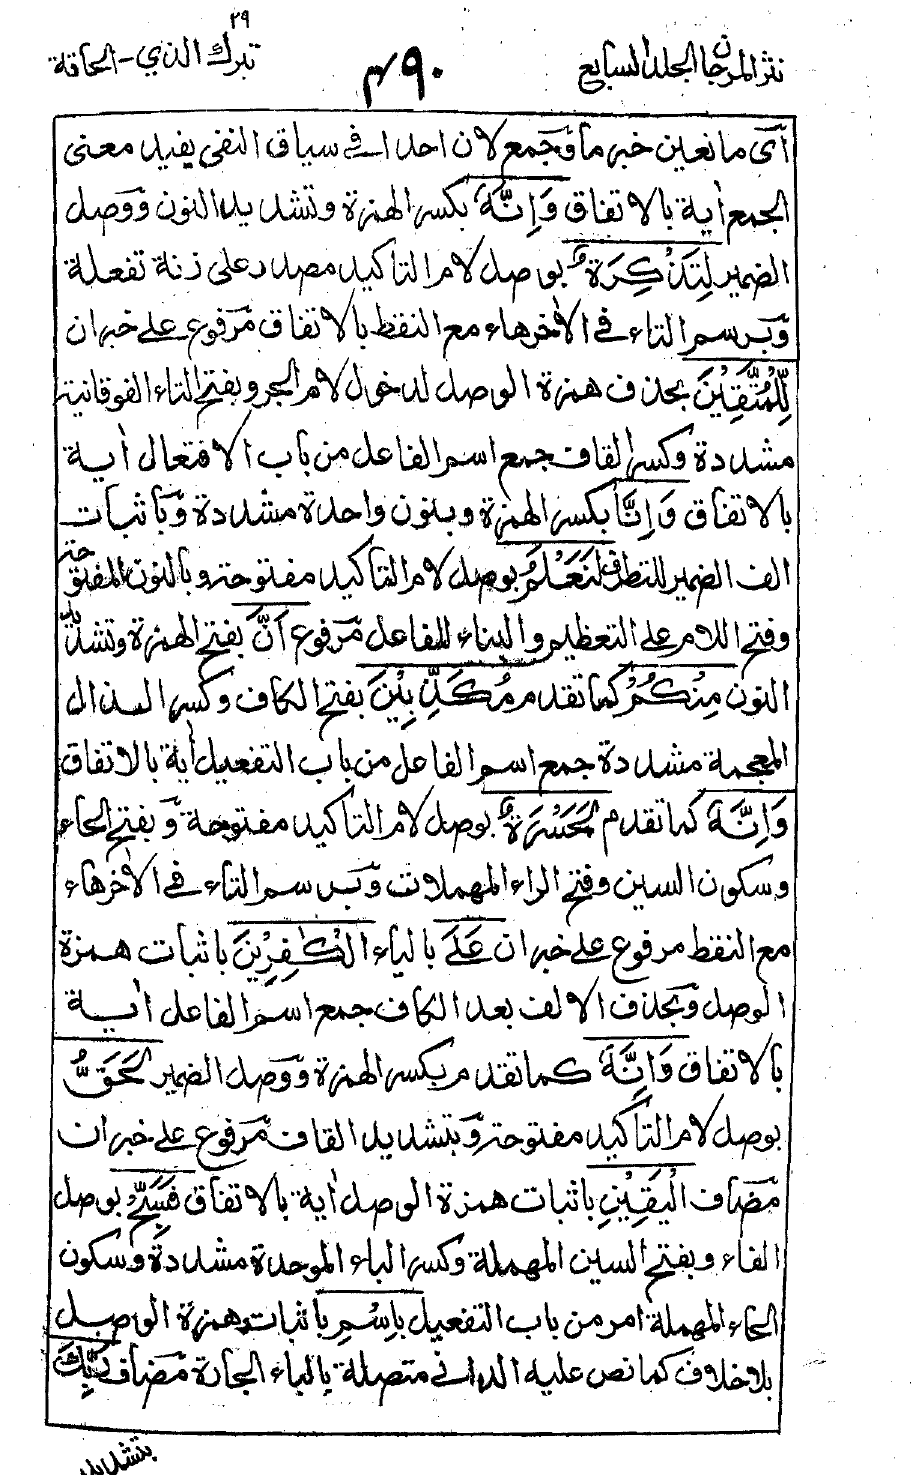 ٢٩
نثر المرجان الجلد السابع
٤٩٠
تبرك الذي - الحاقة
اى مانعين خبر ما وجمع لان احدا في سياق النفى يفيد معنى
الجمع اية بالاتفاق وَاِنَّهٗ بكسر الهمزة وتشديد النون ووصل
الضمير لَتَذْكِرَةٌ بوصل لام التاكيد مصدر على زنة تفعلة
وبرسم التاء فى الاٰخر هاء مع النقط بالاتفاق مرفوع على خبر ان
لِّلْمُتَّقِيْنَ بحذف همزة الوصل لدخول لام الجر وبفتح التاء الفوقانية
مشددة وكسر القاف جمع اسم الفاعل من باب الافتعال اٰية
بالاتفاق وَاِنَّا بكسر الهمزة وبنون واحدة مشددة وباثبات
الف الضمير للتطرف لَنَعْلَمُ بوصل لام التاكيد مفتوحة وبالنون المفتوحة
وفتح اللام على التعظيم والبناء للفاعل مرفوع اَنَّ بفتح الهمزة وتشديد
النون مِنْكُمْ كما تقدم مُكَذِّبِيْنَ بفتح الكاف وكسر الذال
المعجمة مشددة جمع اسم الفاعل من باب التفعيل اٰية بالاتفاق
وَاِنَّهٗ كما تقدم لَحَسْرَةٌ بوصل لام التاكيد مفتوحة وبفتح الحاء
وسكون السين وفتح الراء المهملات وبرسم التاء فى الاٰخر هاء
مع النقط مرفوع على خبر ان عَلَى بالياء الْكٰفِرِيْنَ باثبات همزة
الوصل وبحذف الالف بعد الكاف جمع اسم الفاعل اٰية
بالاتفاق وَاِنَّهٗ كما تقدم بكسر الهمزة ووصل الضمير لَحَقُّ
بوصل لام التاكيد مفتوحة وبتشديد القاف مرفوع على خبر ان
مضاف الْيَقِيْنِ باثبات همزة الوصل اٰية بالاتفاق فَسَبِّحْ بوصل
الفاء وبفتح السين المهملة وكسر الباء الموحدة مشددة وسكون
الحاء المهملة امر من باب التفعيل بِاسْمِ باثبات همزة الوصل
بلاخلاف كما نص عليه الدانى متصلة بالباء الجارة مضاف رَبِّكَ
بتشديد